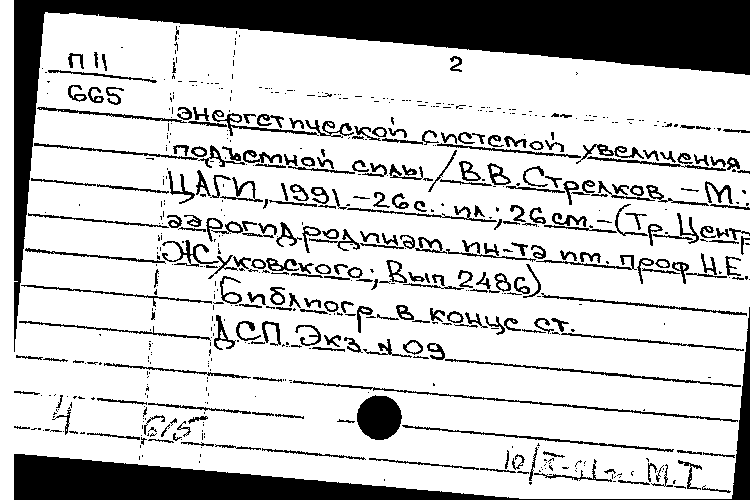 П II
2
665
энергетической системой увеличения
подъемной силы / В.В. Стрелков. – М.:
ЦАГИ, 1991. – 26с.: ил.; 26см. – (Тр. Центр
аэрогидродинам. ин-та им. проф Н.Е.
Жуковского; Вып 2486)
Библиогр. в конце ст.
ДСП. Экз. N 09
4 б/5
М.Т.